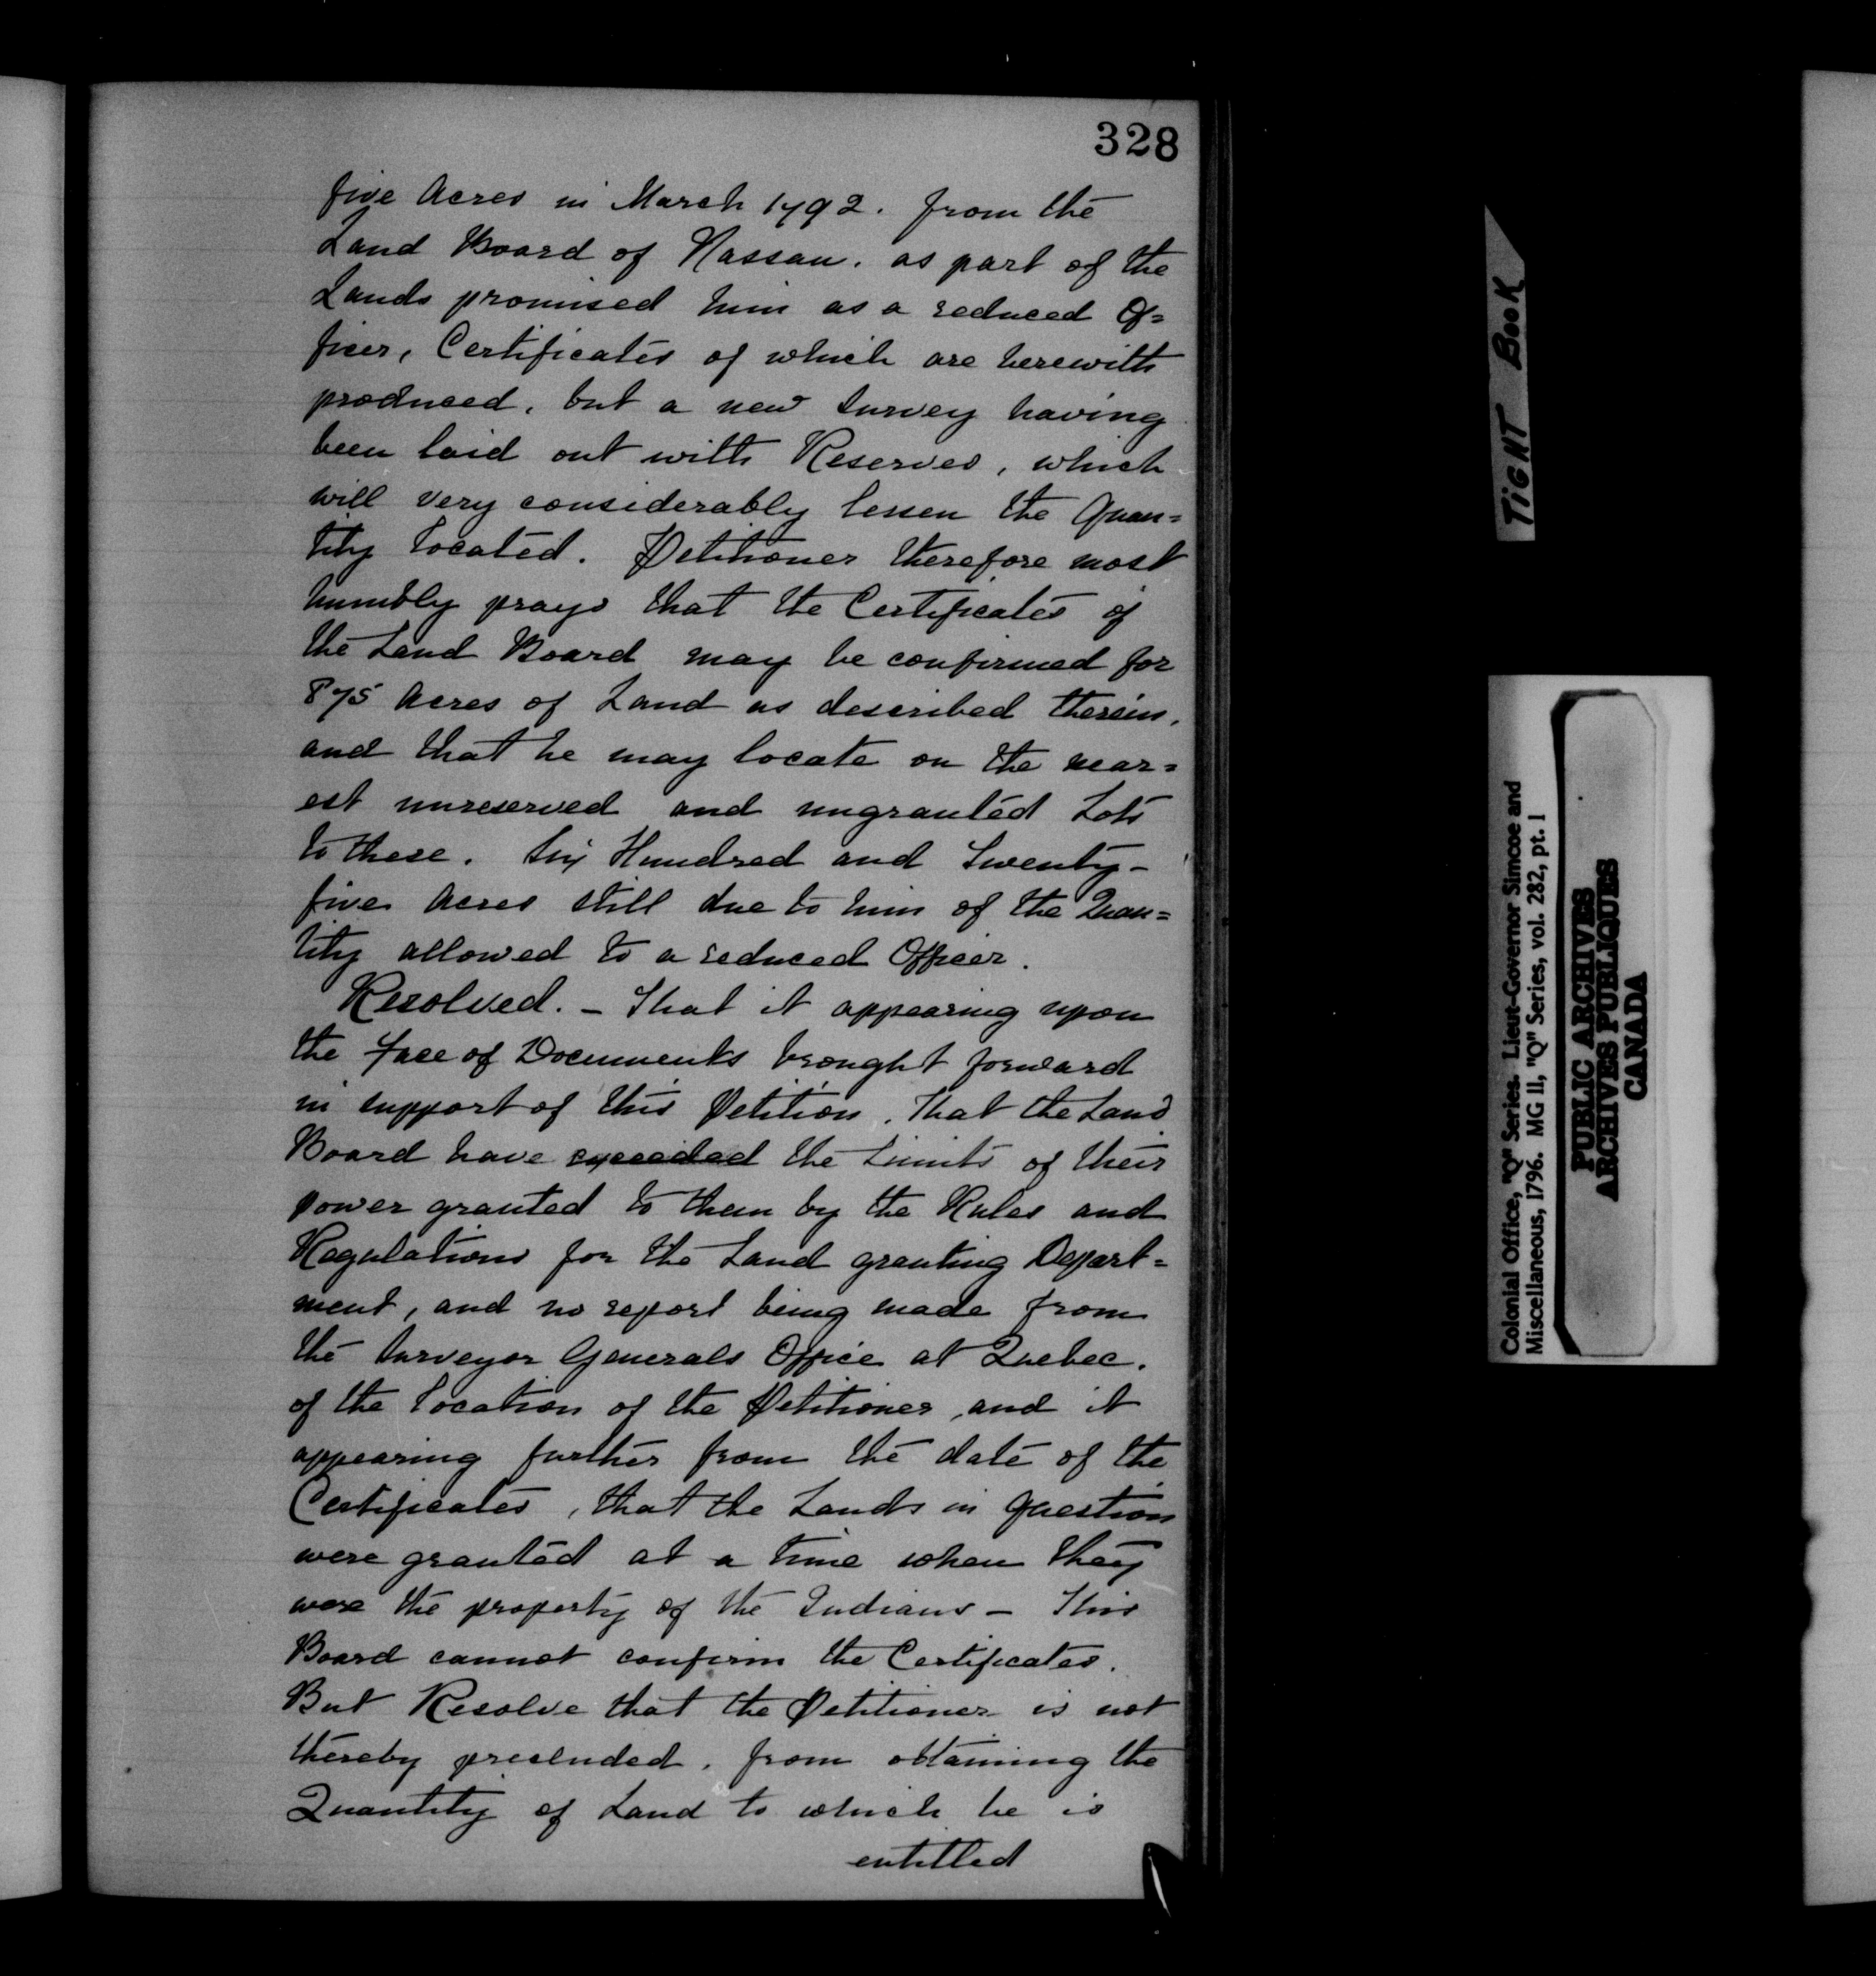 328
five Acres in March 1792. from the
Land Board of Nassau. as part of the
Lands promised him as a reduced Of=
ficer, Certificates of which are herewith
produced, but a new Survey having
been laid out with Reserves, which
will very considerably lessen the Quan=
tity located. Petitioner therefore most
humbly prays that the Certificates of
the Land Board may be confirmed for
875 Acres of Land as described therein,
and that he may locate on the near=
est unreserved and ungranted Lots
to these. Six Hundred and Twenty-
five Acres still due to him of the Quan=
tity allowed to a reduced Officer.
Resolved. - That it appearing upon
the face of Documents brought forward
in support of this Petition, that the Land
Board have exceeded the Limits of their
power granted to them by the Rules and
Regulations for the Land granting Depart=
ment, and no report being made from
the Surveyor Generals Office at Quebec.
of the Location of the Petitioner, and it
appearing further from the date of the
Certificates, that the Lands in question
were granted at a time when they
were the property of the Indians - This
Board cannot confirm the Certificates.
But Resolve that the Petitioner is not
thereby precluded, from obtaining the
Quantity of Land to which he is
entitled
TIGHT BOOK
Colonial Office, "Q" Series. Lieut-Governor Simcoe and
Miscellaneous, 1796. MG 11, "Q" Series, vol. 282, pt. 1
PUBLIC ARCHIVES
ARCHIVES PUBLIQUES
CANADA